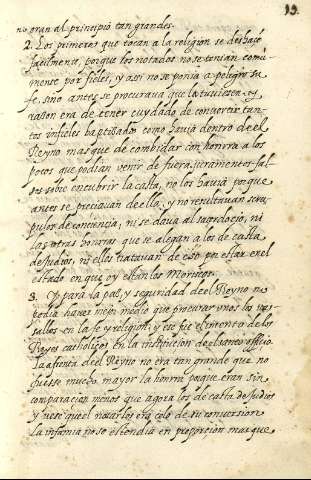 19.
no eran al principio tan grandes.
2. Los primeros que tocan a la religion se deshaçe
façilmente, porque los notados no se tenian comũ
mente por fieles, y assi no se ponia a peligro su
fe, sino antes se procurava que la tuviesen. y
raçon era de tener cuydado de convertir tan-
tos infieles baptiçados como havia dentro de el
Reyno mas que de combidar con honrra a los
pocos que podian venir de fuera, juramentos fal-
sos sobre encubrir la casta, no los havia porque
antes se preciavan de ello, y no resultavan scru-
pulos de conciencia, ni se dava al sacerdocio, ni
las otras honrras que se alegan a los de casta
de Judios, ni ellos tratavan de eso por estar en el
estado en que oy estan los Moriscos.
3. Y para la paz, y seguridad de el Reyno no
podia haver mejor medio que procurar unos los vas-
sallos en la fe y religion, y ese fue el intento de los
Reyes catholicos en la institucion de el santo officio.
La afrenta de el Reyno no era tan grande que no
fuesse mucho mayor la honrra porque eran sin
comparacion menos que agora los de casta de Judios
y vese que el notarlos era celo de su conversion
La infamia no se estendia en proporcion mas que